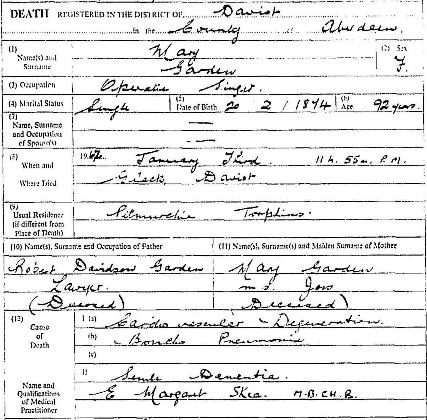 DEATH REGISTERED IN THE DISTRICT OF Daviot
in the County of Aberdeen
(1) Name(s) and Surname Mary Garden (2) Sex F.
(3) Occupation Operatic Singer
(4) Marital Status Single (5) Date of Birth 20 2 / 1874 (6) Age 92 years.
(7) Name, Surname and Occupation of Spouse(s) — —
(8) When and Where Died 1967 January Third 11 h. 55 m. P.M.
Daviot
(9) Usual Residence (if different from Place of Death) Torphins.
(10) Name(s), Surname and Occupation of Father (11) Name(s), Surname(s) and Maiden Surname of Mother
Robert Davidson Garden Mary Garden
Lawyer m.s. Joss
(Deceased) (Deceased)
(12) Cause of Death I (a) Cardio vascular Degeneration.
(b) Broncho Pneumonia
(c)
II Senile Dementia.
Name and Qualifications of Medical Practitioner E Margaret Shea. M.B.CH.B.